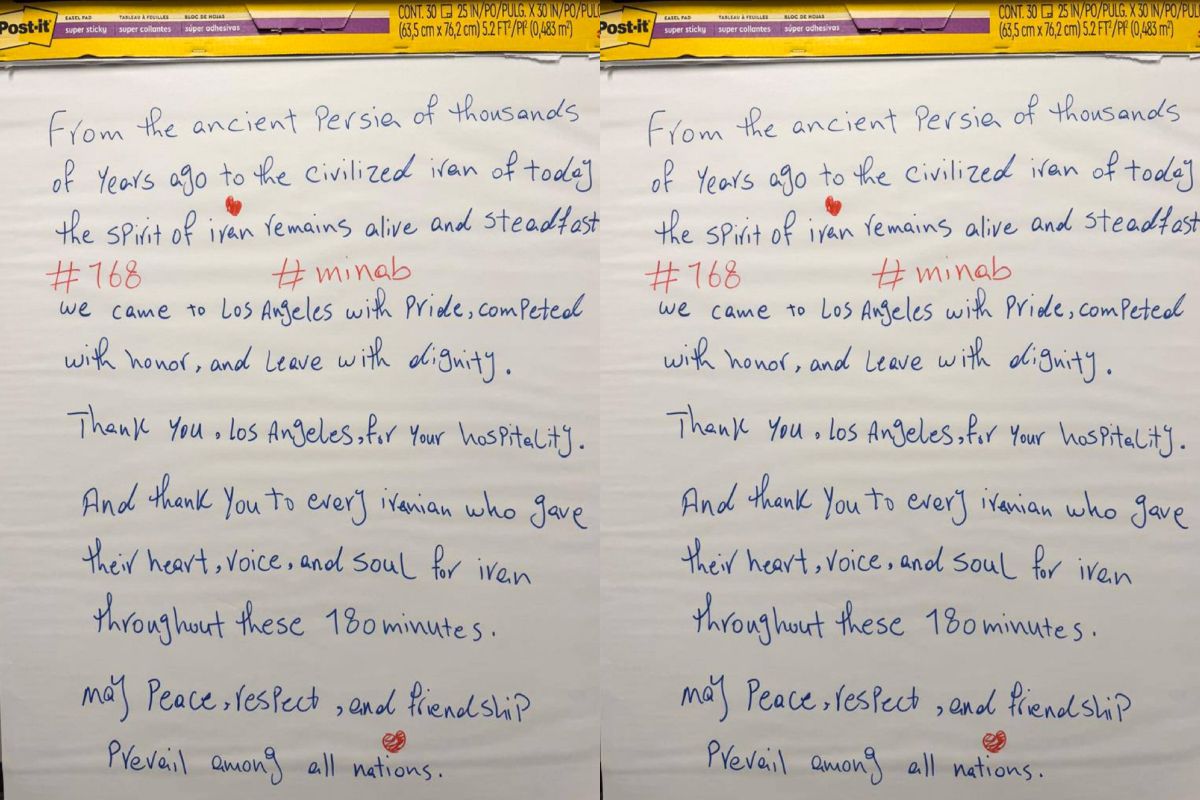 Post-it
EASEL PAD TABLEAU À FEUILLES BLOC DE HOJAS
super sticky super collantes súper adhesivas
CONT. 30 25 IN/PO/PULG. X 30 IN/PO/PULG
(63,5 cm x 76,2 cm) 5.2 FT²/PI² (0,483 m²)
From the ancient Persia of thousands
of years ago to the civilized iran of today
the spirit of iran remains alive and steadfast
#168 #minab
we came to Los Angeles with Pride, competed
with honor, and Leave with dignity.
Thank you, Los Angeles, for your hospitality.
And thank you to every iranian who gave
their heart, voice, and soul for iran
throughout these 180 minutes.
may Peace, respect, and friendship
Prevail among all nations.
Post-it
EASEL PAD TABLEAU À FEUILLES BLOC DE HOJAS
super sticky super collantes súper adhesivas
CONT. 30 25 IN/PO/PULG. X 30 IN/PO/PUL
(63,5 cm x 76,2 cm) 5.2 FT²/PI² (0,483 m²)
From the ancient Persia of thousands
of years ago to the civilized iran of today
the spirit of iran remains alive and steadfast
#168 #minab
we came to Los Angeles with Pride, competed
with honor, and Leave with dignity.
Thank you, Los Angeles, for your hospitality.
And thank you to every iranian who gave
their heart, voice, and soul for iran
throughout these 180 minutes.
may Peace, respect, and friendship
Prevail among all nations.